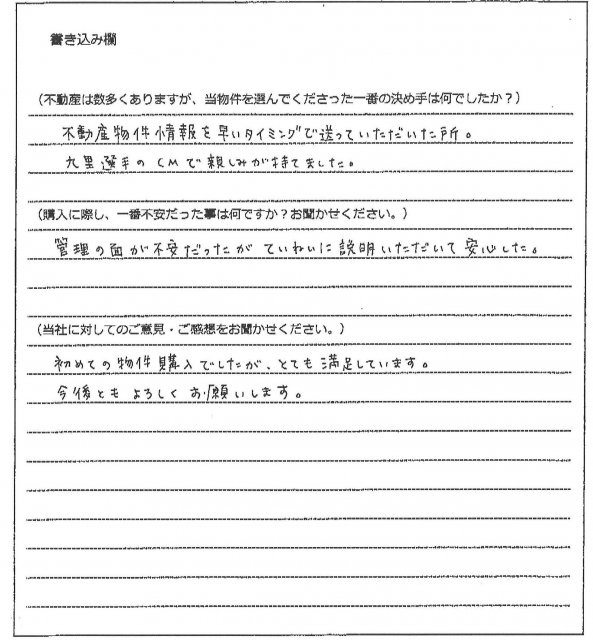 書き込み欄
(不動産は数多くありますが、当物件を選んでくださった一番の決め手は何でしたか？)
不動産物件情報を早いタイミングで送っていただいた所。
九里選手のCMで親しみが持てました。
(購入に際し、一番不安だった事は何ですか？お聞かせください。)
管理の面が不安だったがていねいに説明いただいて安心した。
(当社に対してのご意見・ご感想をお聞かせください。)
初めての物件購入でしたが、とても満足しています。
今後ともよろしくお願いします。